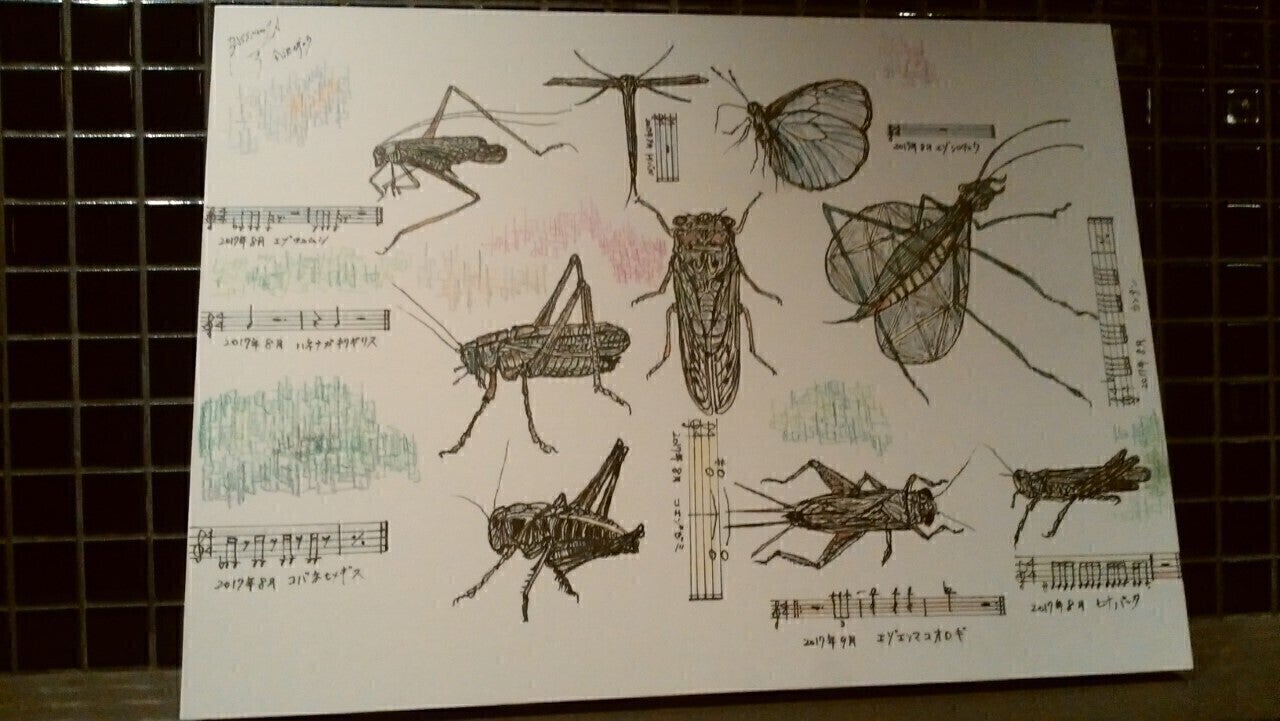 2017年8月 エゾシロチョウ
2017年8月 エゾツユムシ
2017年8月 ハネナガキリギリス
2017年8月 カンタン
2017年8月 コエゾゼミ
2017年8月 コバネヒメギス
2017年8月 ヒナバッタ
2017年9月 エゾエンマコオロギ